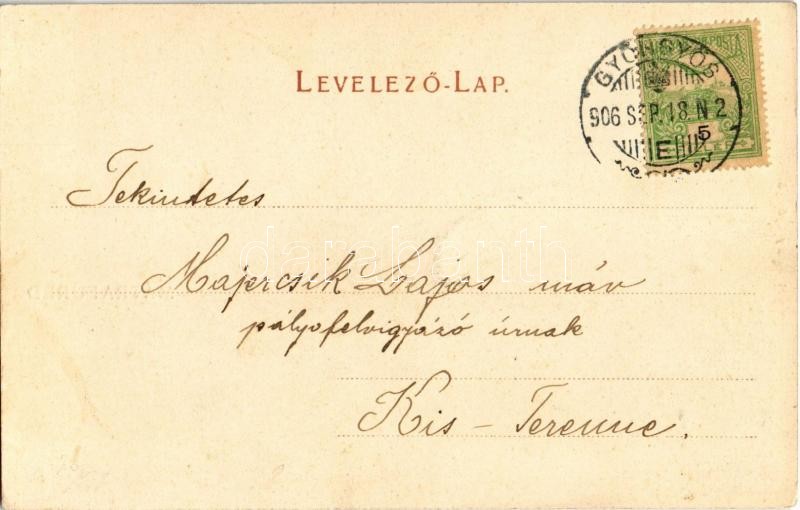 LEVELEZŐ-LAP.
GYÖNGYÖS
906 SEP. 18. N 2
E
5
Tekintetes
Majercsik Lajos máv
pályafelvigyázó úrnak
Kis-Terenne.
darabanth